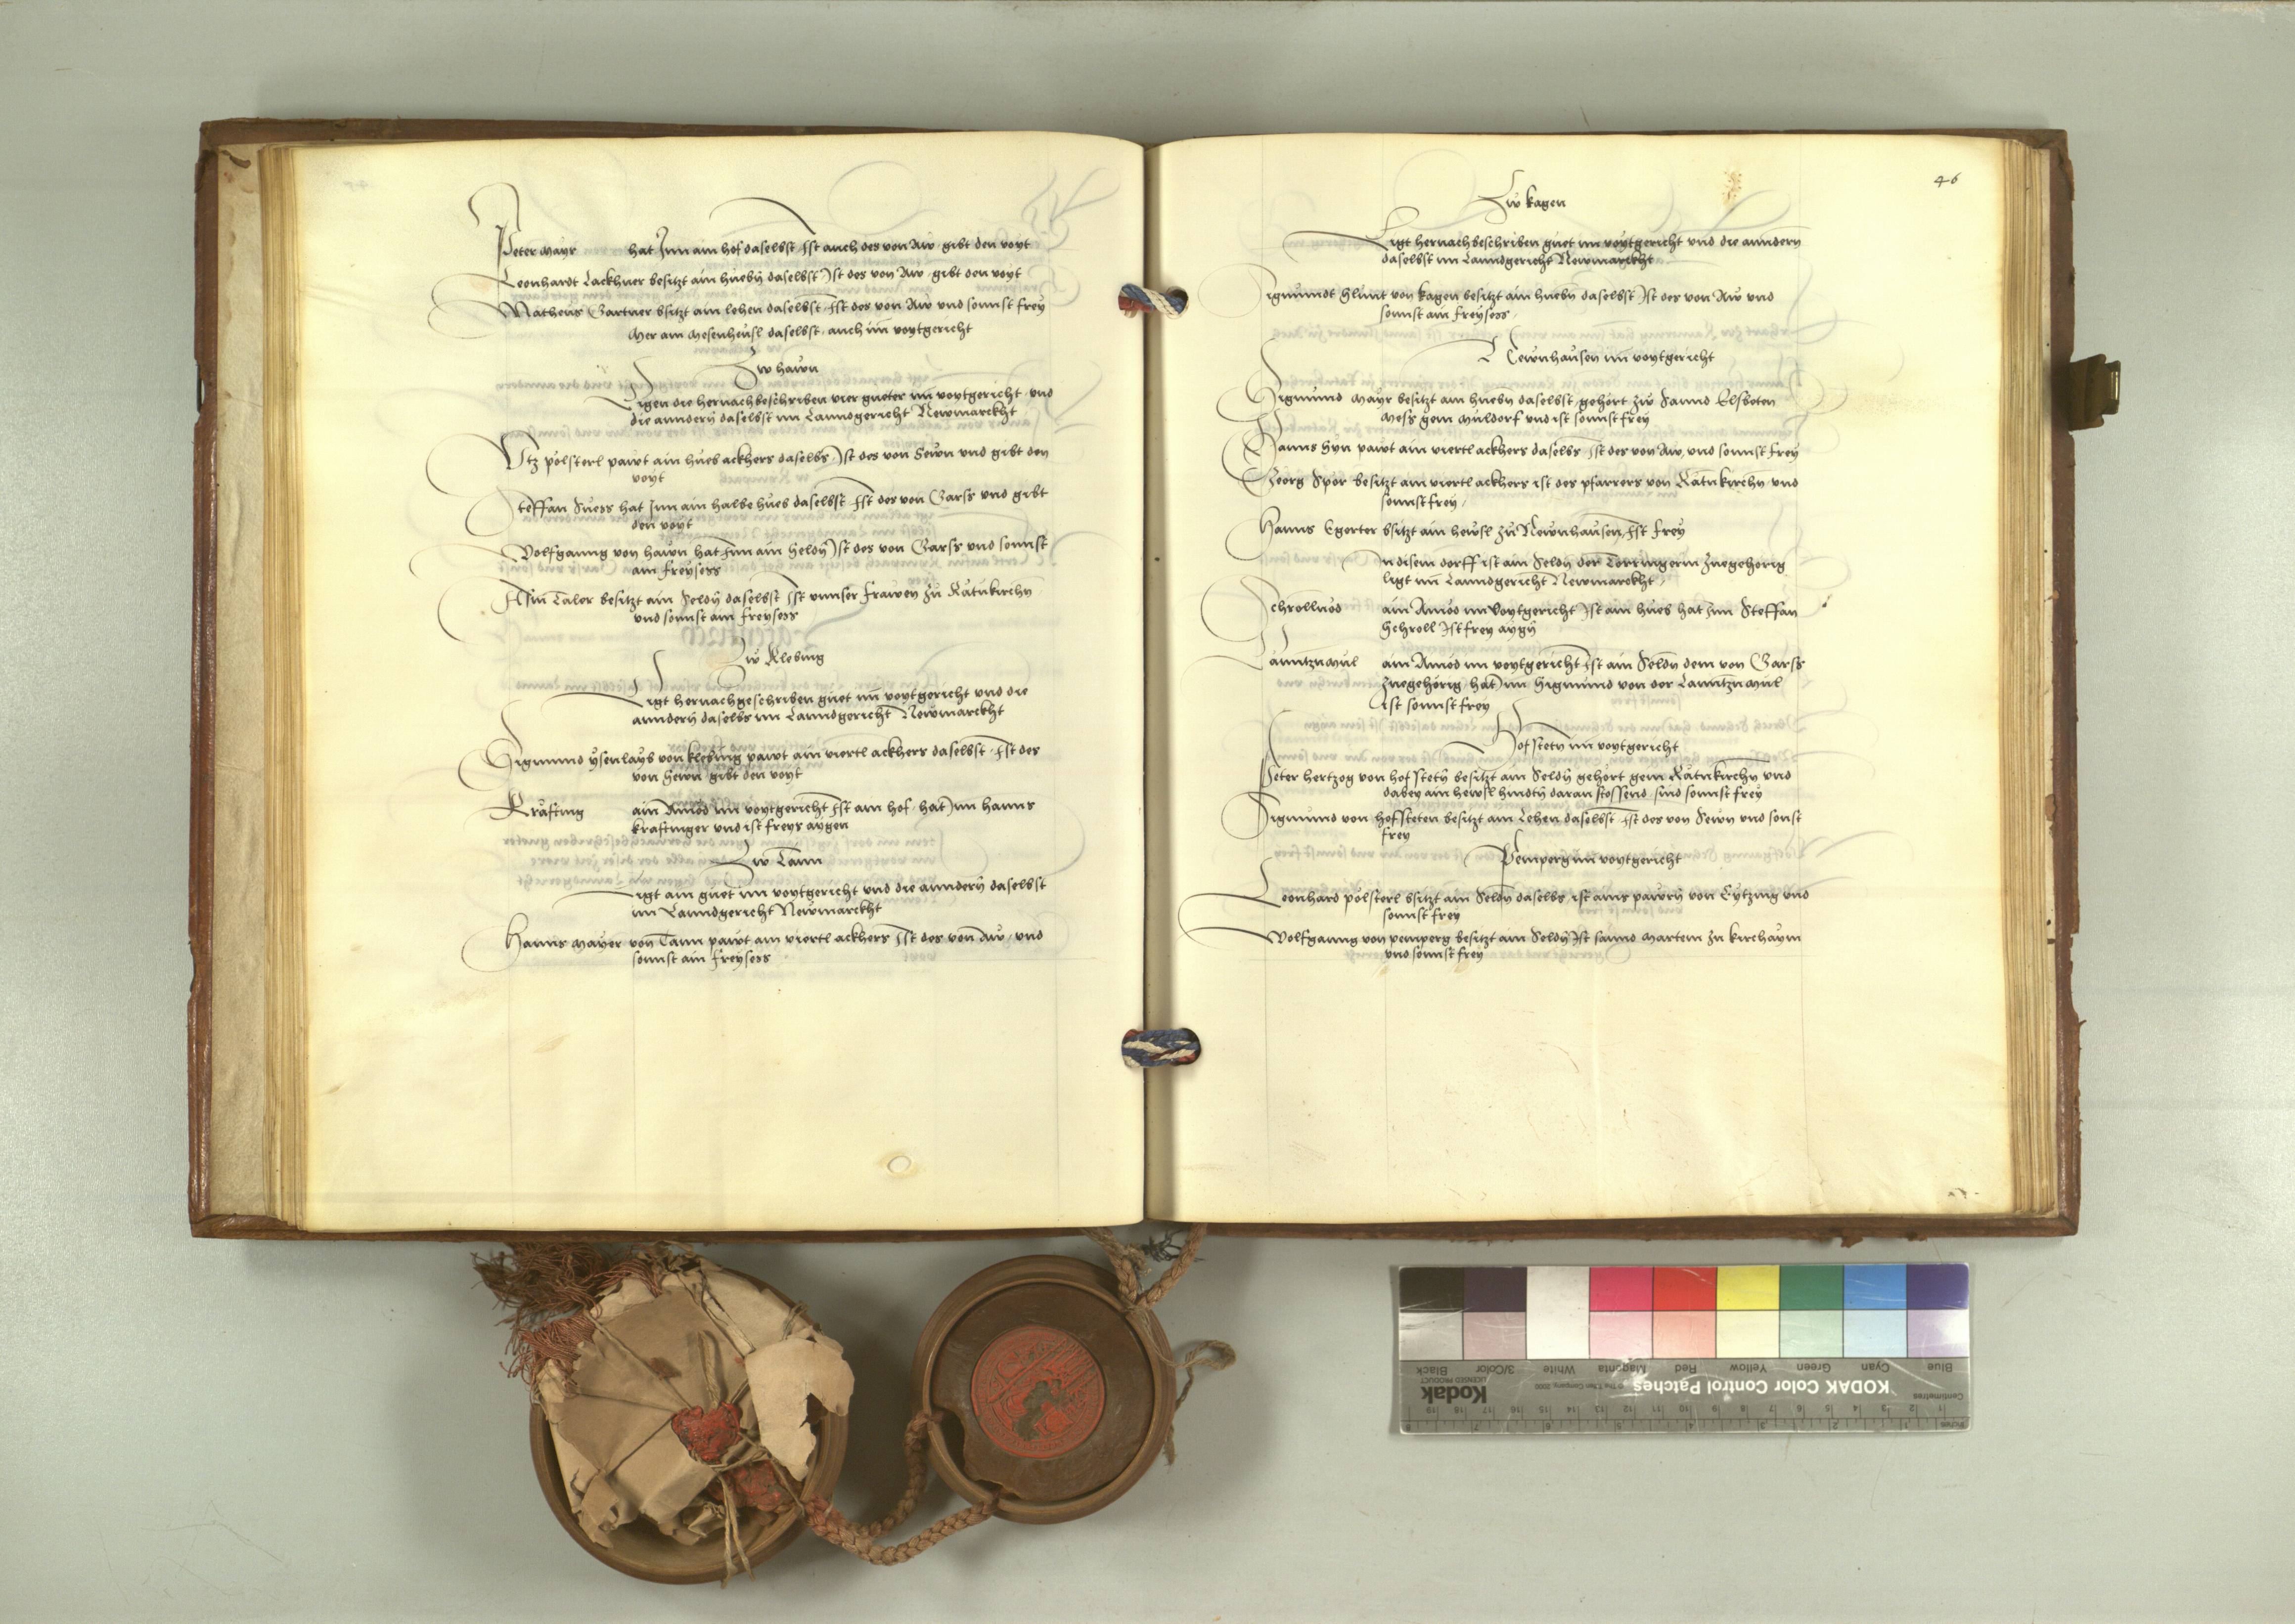 Peter mayr hat Inn ain hof daselbst Ist auch des von Aw gibt den voyt
Leonhardt Lackhner besitzt ain huebñ daselbst Ist des von Aw gibt den voyt
Matheus Gartner bsitzt ain lehen daselbst Ist des von Aw und sonnst frey
mer ain mesenheusl daselbst auch im voytgericht
Zw hawn
Ligen die hernachbeschriben vier gueter im voytgericht und
die anndern daselbst im Lanndgericht Newmarckht
Utz polsterl pawt ain hueb ackhers daselbs Ist des von Sewn und gibt den
voyt
Steffan Suess hat Inn ain halbe hueb daselbst Ist des von Garss und gibt
den voyt
Wolfganng von hawn hat Inn ain Seldñ Ist des von Garss und sonnst
ain freysess
Asm Taler besitzt ain Seldñ daselbst Ist unnser frawen zu Ratnkirchn
und sonnst ain freysess
Zw Klebing
Ligt hernachgeschriben guet im voytgericht und die
anndern daselbs im Lanndgericht Newmarckht
Sigmund ysenlays von klebing pawt ain viertl ackhers daselbst Ist des
von Sewn gibt den voyt
Kräfting ain Ainod im voytgericht Ist ain hof hat Im hanns
kraftinger und ist freys aygen
Zw Tann
Ligt ain guet im voytgericht und die anndern daselbst
im Lanndgericht Newmarckht
Hanns mayer von Tann pawt ain viertl ackhers Ist des von Aw und
sonnst ain freysess
46
Zw kagen
Ligt hernachbeschriben guet im voytgericht und die anndern
daselbst im Lanndgericht Newmarckht
Sigmundt Slunt von kagen besitzt ain huebñ daselbst Ist des von Aw und
sonnst ain freysess
Newnhausen im voytgericht
Sigmund mayr besitzt ain huebn daselbst gehort zw Sannd Elsbeten
mess gein muldorf und ist sonnst frey
Hanns Hyn pawt ain viertl ackhers daselbs Ist des von Aw und sonnst frey
Georg Spor besitzt ain viertl ackhers ist des pfarrers von Ratnkirchn und
sonnst frey
Hanns Egerter bsitzt ain hewsl zu Newnhausen Ist frey
In disem dorff ist ain Seldn der Torringerin zuegehörig
ligt im Lanndgericht Newmarckht
Schrollnöd ain Ainöd im voytgericht Ist ain hueb hat Inn Steffan
Schroll Ist frey aygn
Lanntznmul ain Ainod im voytgericht Ist ain Seldn dem von Garss
zuegehörig hat Im Sigmund von der Lanntznmul
Ist sonnst frey
Hofstetn im voytgericht
Peter hertzog von hofstetn besitzt ain Seldn gehört gein Ratnkirchn und
dabey ain hewsl hindtn daran stossend sind sonnst frey
Sigmund von hofsteten besitzt ain Lehen daselbst Ist des von Sewn und sonst
frey
Pemperg im voytgericht
Leonhard polsterl bsitzt ain Seldn daselbs ist ains pawrn von Eytzing und
sonnst frey
Wolfganng von pemperg besitzt ain Seldñ Ist sannd martein zu kirchaym
und sonnst frey
KODAK Color Control Patches
Kodak
LICENSED PRODUCT
Blue Cyan Green Yellow Red Magenta White 3/Color Black
Centimetres